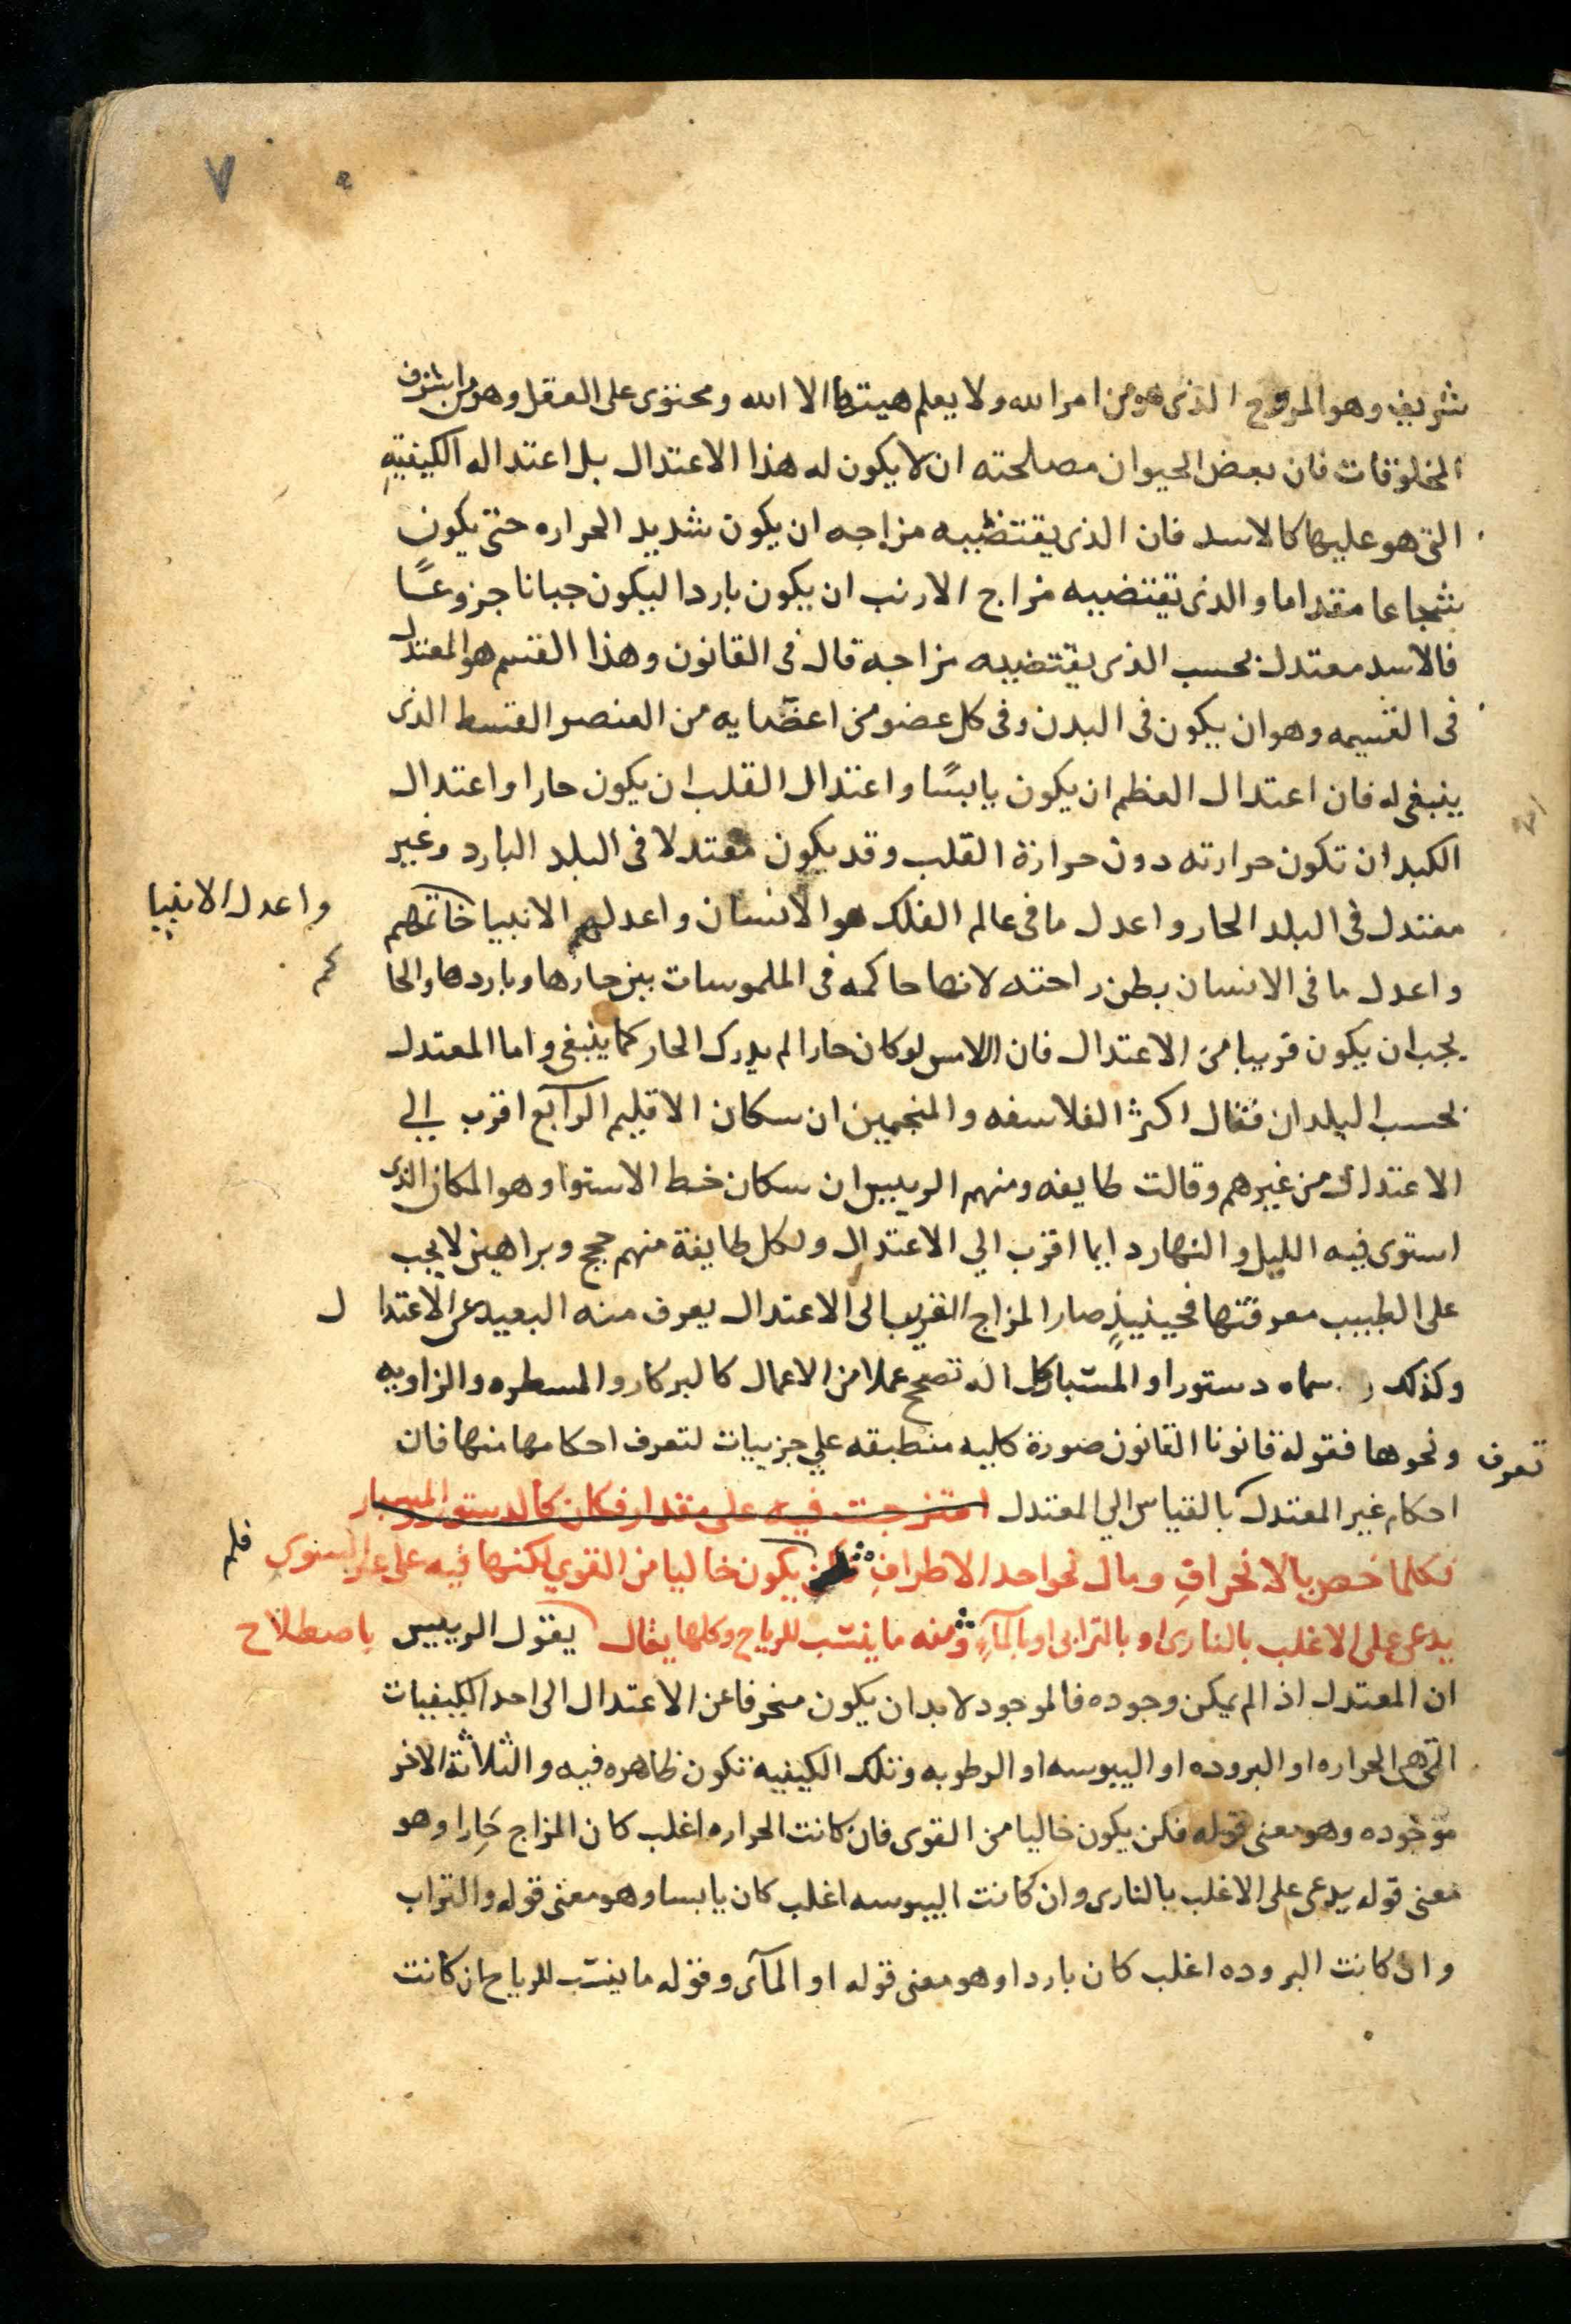 ٧
شريف وهو الروح الذى هو من امر الله ولا يعلم هيتها الا الله ومحتوى على العقل وهو من اشرف
المخلوقات فان بعض الحيوان مصلحته ان لا يكون له هذا الاعتدال بل اعتداله الكيفيه
التى هو عليها كالاسد فان الذى يقتضيه مزاجه ان يكون شديد الحراره حتى يكون
شجاعا مقداما والذى يقتضيه مزاج الارنب ان يكون باردا ليكون جبانا جزوعًا
فالاسد معتدل بحسب الذى يقتضيه مزاجه قال فى القانون وهذا القسم هو المعتدل
فى القسمه وهو ان يكون فى البدن وفى كل عضو من اعضايه من العنصر القسط الذى
ينبغى له فان اعتدال العظم ان يكون يابسًا واعتدال القلب ان يكون حارا واعتدال
الكبد ان تكون حرارته دون حرارة القلب وقد يكون معتدلا فى البلد البارد وغير
معتدل فى البلد الحار واعدل ما فى عالم الفلك هو الانسان واعدلهم الانبيا خاتمهم واعدل الانبيا
واعدل ما فى الانسان بطن راحته لانها حاكمه فى الملموسات بين حارها وباردها والحا كم
يجب ان يكون قريبا من الاعتدال فان اللامس لو كان حارا لم يدرك الحار كما ينبغى واما المعتدل
بحسب البلدان فقال اكثر الفلاسفه والمنجمين ان سكان الاقليم الرابع اقرب الي
الاعتدال من غيرهم وقالت طايفه ومنهم الرييس ان سكان خط الاستوا وهو المكان الذى
استوى فيه الليل والنهار دايما اقرب الي الاعتدال ولكل طايفة منهم حجج وبراهين لا يجب
على الطبيب معرفتها فحينيذٍ صار المزاج القريب الى الاعتدال يعرف منه البعيد عن الاعتدا ل
وكذلك سماه دستورا والمسبار كل اله تصحح عملا من الاعمال كالبركار والمسطره والزاويه
ونحوها فقوله قانونا القانون صورة كليه منطبقه علي جزييات لتعرف احكامها منها فان تعرف
احكام غير المعتدل بالقياس الي المعتدل امتزجت فيه على مقدار فكان كالدستور والمسبار
فكلما خص بالانحرافِ ومال نحو احد الاطرافِ يكون خاليا من القوي لكنها فيه على غير السنوى فلم
يدعى على الاغلب بالنارى او بالترابى او بالمآءِ ومنه ما ينسب للرياح وكلها يقال باصطلاح يقول الرييس
ان المعتدل اذا لم يمكن وجوده فالموجود لا بد ان يكون منحرفا عن الاعتدال الى احد الكيفيات
التى هى الحراره او البروده او اليبوسه او الرطوبه وتلك الكيفيه تكون ظاهره فيه والثلاثة الاخر
موجوده وهو معنى قوله فلن يكون خاليا من القوى فان كانت الحراره اغلب كان المزاج حَارا وهو
معنى قوله يدعى على الاغلب بالنارى وان كانت اليبوسه اغلب كان يابسا وهو معنى قوله والتراب
وان كانت البروده اغلب كان باردا وهو معنى قوله او المآى وقوله ما ينسب للرياح ان كانت